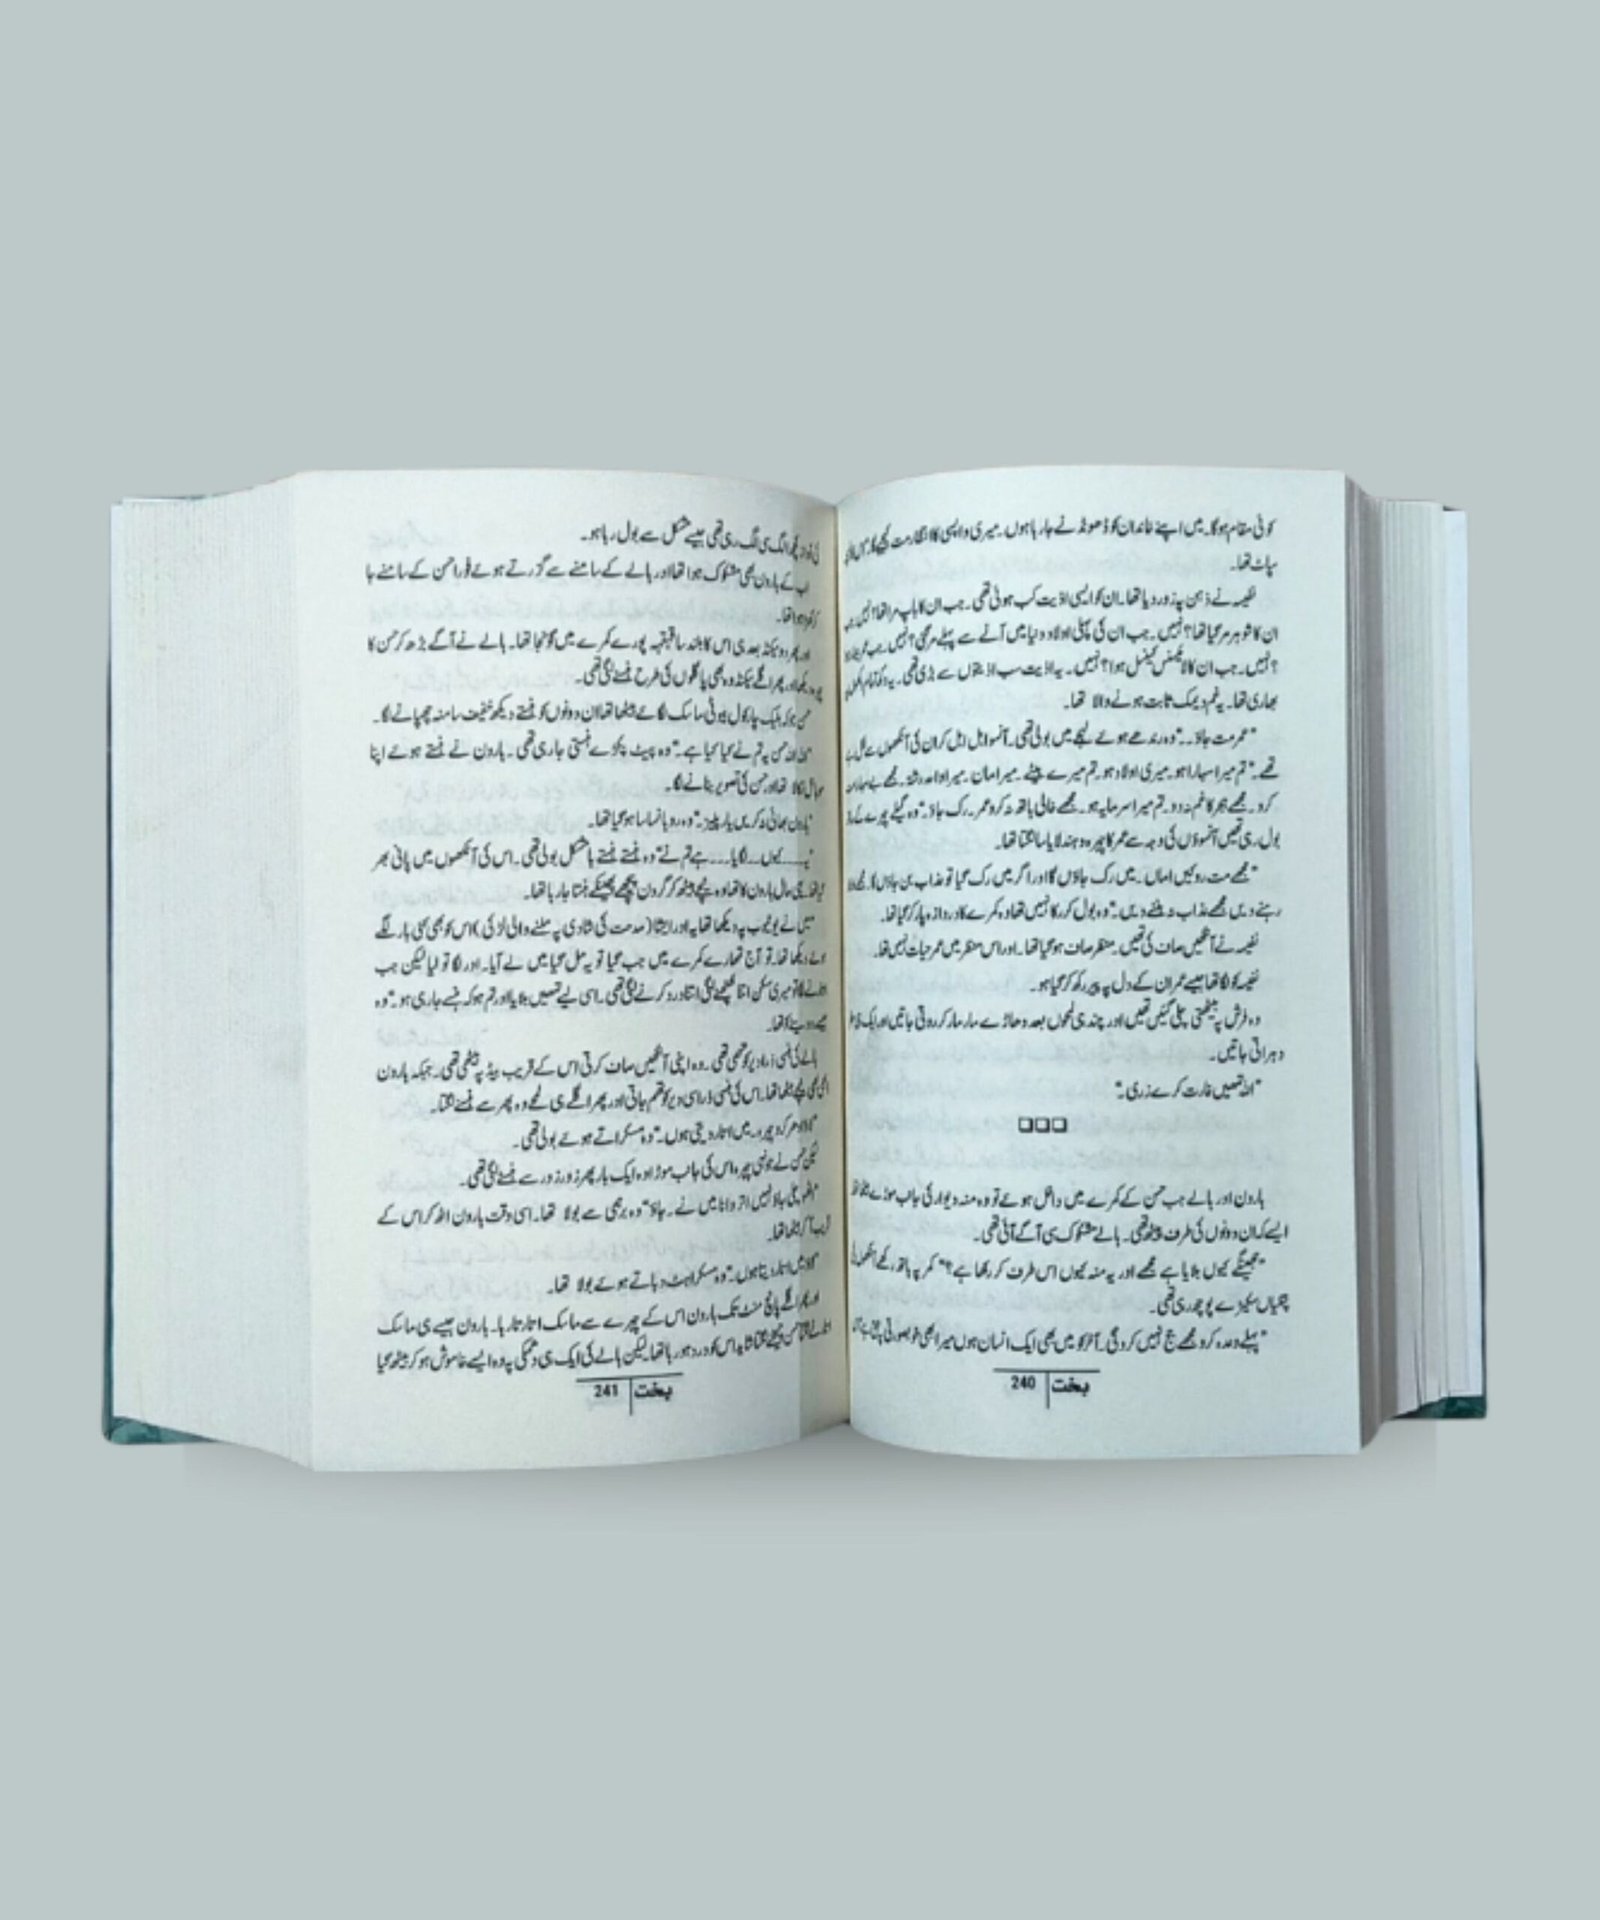 کوئی مقام ہوگا۔ میں اپنے خاندان کو ڈھونڈنے جا رہا ہوں۔ میری واپسی کا انتظار مت کیجیے گا۔
سپاٹ تھا۔
نفیسہ نے ذہن پہ زور دیا تھا۔ ان کو ایسی اذیت کب ہوئی تھی۔ جب ان کا باپ مرا تھا؟ نہیں۔ جب
ان کا شوہر مر گیا تھا؟ نہیں۔ جب ان کی پہلی اولاد دنیا میں آنے سے پہلے مر گئی؟ نہیں۔ جب
؟ نہیں۔ جب ان کا لائسنس کینسل ہوا؟ نہیں۔ یہ اذیت سب اذیتوں سے بڑی تھی۔ یہ دکھ تمام
بھاری تھا۔ یہ غم دیمک ثابت ہونے والا تھا۔
"عمر مت جاؤ۔۔" وہ رندھے ہوئے لہجے میں بولی تھی۔ آنسو ابل ابل کر ان کی آنکھوں سے
تھے۔ "تم میرا سہارا ہو۔ میری اولاد ہو۔ تم میرے بیٹے۔ میرا مان۔ میرا واحد رشتہ۔ مجھے بے سہارا مت
کرو۔ مجھے ہجر کا غم نہ دو۔ تم میرا سرمایہ ہو۔ مجھے خالی ہاتھ نہ کرو عمر۔ رک جاؤ۔" وہ گیلے چہرے کے
بول رہی تھیں آنسوؤں کی وجہ سے عمر کا چہرہ دھندلایا سا لگتا تھا۔
"مجھے مت روکیں اماں۔ میں رک جاؤں گا اور اگر میں رک گیا تو عذاب بن جاؤں گا۔ مجھے
رہنے دیں مجھے عذاب نہ بننے دیں۔" وہ بول کر رکا نہیں تھا وہ کمرے کا دروازہ پار کر گیا تھا۔
نفیسہ نے آنکھیں صاف کی تھیں۔ منظر صاف ہو گیا تھا۔ اور اس منظر میں عمر حیات نہیں تھا۔
نفیسہ کو لگا تھا جیسے عمر ان کے دل پہ پیر رکھ کر گیا ہو۔
وہ فرش پہ بیٹھتی چلی گئیں تھیں اور چند ہی لمحوں بعد دھاڑے مار مار کر روتی جاتیں اور ایک ہی
دہراتی جاتیں۔
"اللہ تمہیں غارت کرے زری۔"
□□□
ہارون اور ہالے جب حسن کے کمرے میں داخل ہوئے تو وہ منہ دیوار کی جانب موڑے بیٹھا تھا
ایسے کہ ان دونوں کی طرف پیٹھ تھی۔ ہالے مشکوک سی آگے آئی تھی۔
"جھینگے کیوں بلایا ہے مجھے اور یہ منہ کیوں اس طرف کر رکھا ہے؟" کمر پہ ہاتھ رکھے آنکھوں کی
پتلیاں سکیڑے پوچھ رہی تھی۔
"پہلے وعدہ کرو مجھے جج نہیں کرو گی۔ آخر کو میں بھی ایک انسان ہوں میرا بھی خوبصورتی پہ
بخت 240
کی آواز کچھ الگ سی لگ رہی تھی جیسے مشکل سے بول رہا ہو۔
اب کے ہارون بھی مشکوک ہوا تھا اور ہالے کے سامنے سے گزرتے ہوئے فوراً حسن کے سامنے جا
کھڑا ہوا تھا۔
اور پھر دو سیکنڈ بعد ہی اس کا بلند سا قہقہہ پورے کمرے میں گونجا تھا۔ ہالے نے آگے بڑھ کر حسن کا
چہرہ دیکھا اور پھر اگلے سیکنڈ وہ بھی پاگلوں کی طرح ہنسنے لگی تھی۔
حسن جو کہ بلیک چارکول بیوٹی ماسک لگائے بیٹھا تھا ان دونوں کو ہنستے دیکھ خفیف سا منہ چھپانے لگا۔
"اللہ اللہ حسن یہ تم نے کیا کیا ہے۔" وہ پیٹ پکڑے ہنستی جا رہی تھی۔ ہارون نے ہنستے ہوئے اپنا
موبائل نکالا تھا اور حسن کی تصویر بنانے لگا۔
"ہارون بھائی نہ کریں یار پلیز۔" وہ روہانسا سا ہو گیا تھا۔
"یہ۔۔۔ کیوں۔۔ لگایا۔۔۔ ہے تم نے" وہ ہنستے ہنستے بامشکل بولی تھی۔ اس کی آنکھوں میں پانی بھر
گیا تھا۔ یہی حال ہارون کا تھا وہ نیچے بیٹھ کر گردن پیچھے پھینکے ہنستا جا رہا تھا۔
"میں نے یوٹیوب پہ دیکھا تھا یہ اور ایشا (مدحت کی شادی پہ ملنے والی لڑکی) اس کو بھی کئی بار لگے
ہوئے دیکھا تھا۔ تو آج تمہارے کمرے میں جب گیا تو یہ مل گیا میں لے آیا۔ اور لگا تو لیا لیکن جب
اتارنے لگا تو میری سکن اتنا کھنچنے لگی اتنا درد کرنے لگی تھی۔ اسی لیے تمہیں بلایا اور تم ہو کہ ہنسے جا رہی ہو۔" وہ
جیسے رو دینے کو تھا۔
ہالے کی ہنسی ذرا دیر کو تھمی تھی۔ وہ اپنی آنکھیں صاف کرتی اس کے قریب بیڈ پہ بیٹھی تھی۔ جبکہ ہارون
ابھی بھی نیچے بیٹھا تھا۔ اس کی ہنسی ذرا سی دیر کو تھم جاتی اور پھر اگلے ہی لمحے وہ پھر سے ہنسنے لگتا۔
"لاؤ ادھر کرو چہرہ۔ میں اتار دیتی ہوں۔" وہ مسکراتے ہوئے بولی تھی۔
لیکن حسن نے جونہی چہرہ اس کی جانب موڑا وہ ایک بار پھر زور زور سے ہنسنے لگی تھی۔
"اٹھو چلی جاؤ نہیں اتروانا میں نے۔ جاؤ" وہ برہمی سے بولا تھا۔ اسی وقت ہارون اٹھ کر اس کے
قریب آ کر بیٹھا تھا۔
"لاؤ میں اتار دیتا ہوں۔" وہ مسکراہٹ دباتے ہوئے بولا تھا۔
اور پھر اگلے پانچ منٹ تک ہارون اس کے چہرے سے ماسک اتارتا رہا۔ ہارون جیسے ہی ماسک
اتارنے لگتا حسن چیخنے لگتا تھا اس کو درد ہو رہا تھا۔ لیکن ہالے کی ایک ہی دھمکی پہ وہ ایسے خاموش ہو کر بیٹھ گیا
بخت 241